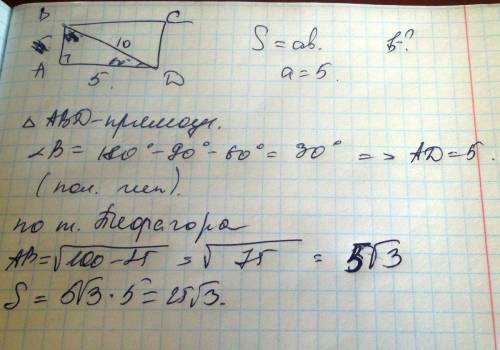 B C
10
A 5 D
S = ab. b-?
a = 5.
△ ABD - прямоуг.
∠B = 180° - 90° - 60° = 30° => AD = 5.
(пол. гип).
по т. Пифагора
AB = √100 - 25 = √75 = 5√3
S = 5√3 · 5 = 25√3.